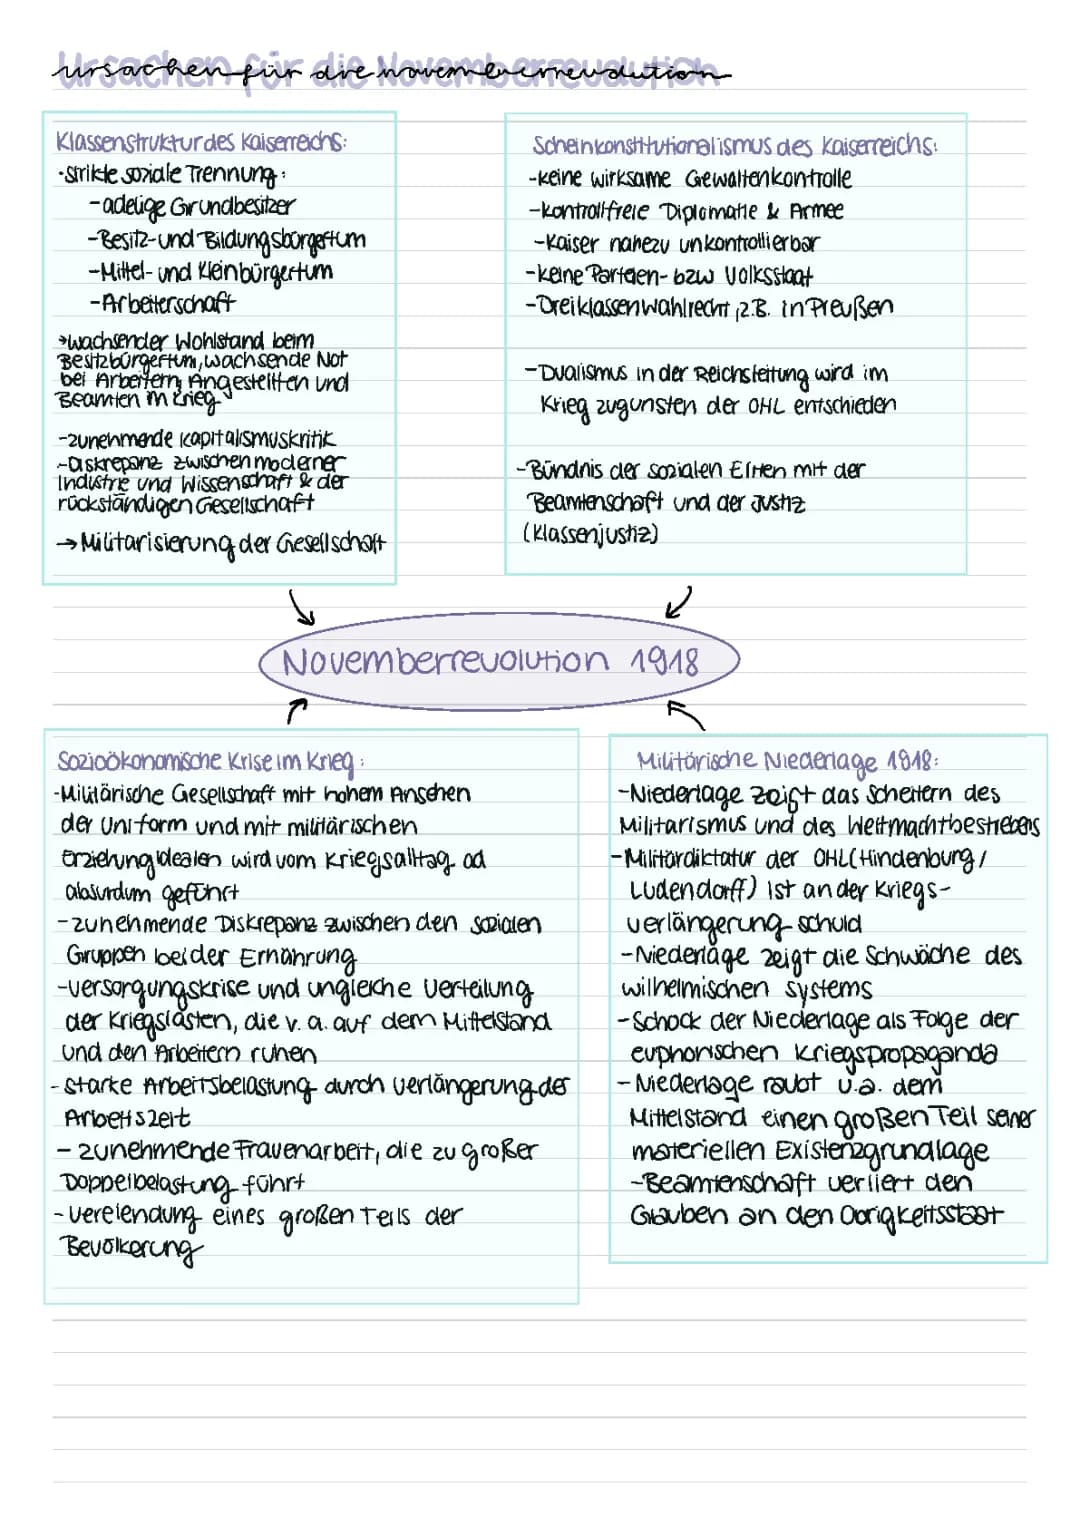 Ursachen für die Novemberrevolution
Klassenstruktur des Kaiserreichs:
·strikte soziale Trennung:
-adelige Grundbesitzer
-Besitz-und Bildungsbürgertum
-Mittel- und Kleinbürgertum
-Arbeiterschaft
→wachsender Wohlstand beim
Besitzbürgertum, wachsende Not
bei Arbeitern, Angestellten und
Beamten im Krieg
-zunehmende Kapitalismuskritik
-Diskrepanz zwischen moderner
Industrie und Wissenschaft & der
rückständigen Gesellschaft
→Militarisierung der Gesellschaft
Scheinkonstitutionalismus des Kaiserreichs:
-keine wirksame Gewaltenkontrolle
-kontrollfreie Diplomatie & Armee
-Kaiser nahezu unkontrollierbar
-keine Parteien- bzw Volksstaat
-Dreiklassenwahlrecht, z.B. in Preußen
-Dualismus in der Reichsleitung wird im
Krieg zugunsten der OHL entschieden
-Bündnis der sozialen Eliten mit der
Beamtenschaft und der Justiz
(Klassenjustiz)
Novemberrevolution 1918
Sozioökonomische Krise im Krieg:
-Militärische Gesellschaft mit hohem Ansehen
der Uniform und mit militärischen
Erziehungsidealen wird vom Kriegsalltag ad
absurdum geführt
-zunehmende Diskrepanz zwischen den sozialen
Gruppen bei der Ernährung
-Versorgungskrise und ungleiche Verteilung
der Kriegslasten, die v. a. auf dem Mittelstand
und den Arbeitern ruhen
-starke Arbeitsbelastung durch Verlängerung der
Arbeitszeit
-zunehmende Frauenarbeit, die zu großer
Doppelbelastung führt
-Verelendung eines großen Teils der
Bevölkerung
Militärische Niederlage 1918:
-Niederlage zeigt das Scheitern des
Militarismus und des Weltmachtbestrebens
-Militärdiktatur der OHL(Hindenburg/
Ludendorff) ist an der Kriegs-
verlängerung schuld
-Niederlage zeigt die Schwäche des
wilhelmischen Systems
-Schock der Niederlage als Folge der
euphorischen Kriegspropaganda
-Niederlage raubt v.a. dem
Mittelstand einen großen Teil seiner
materiellen Existenzgrundlage
-Beamtenschaft verliert den
Glauben an den Obrigkeitsstaat